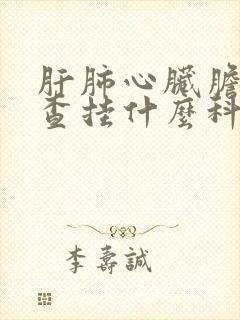 肝肺心臟膽
查挂什麼科
李壽誠